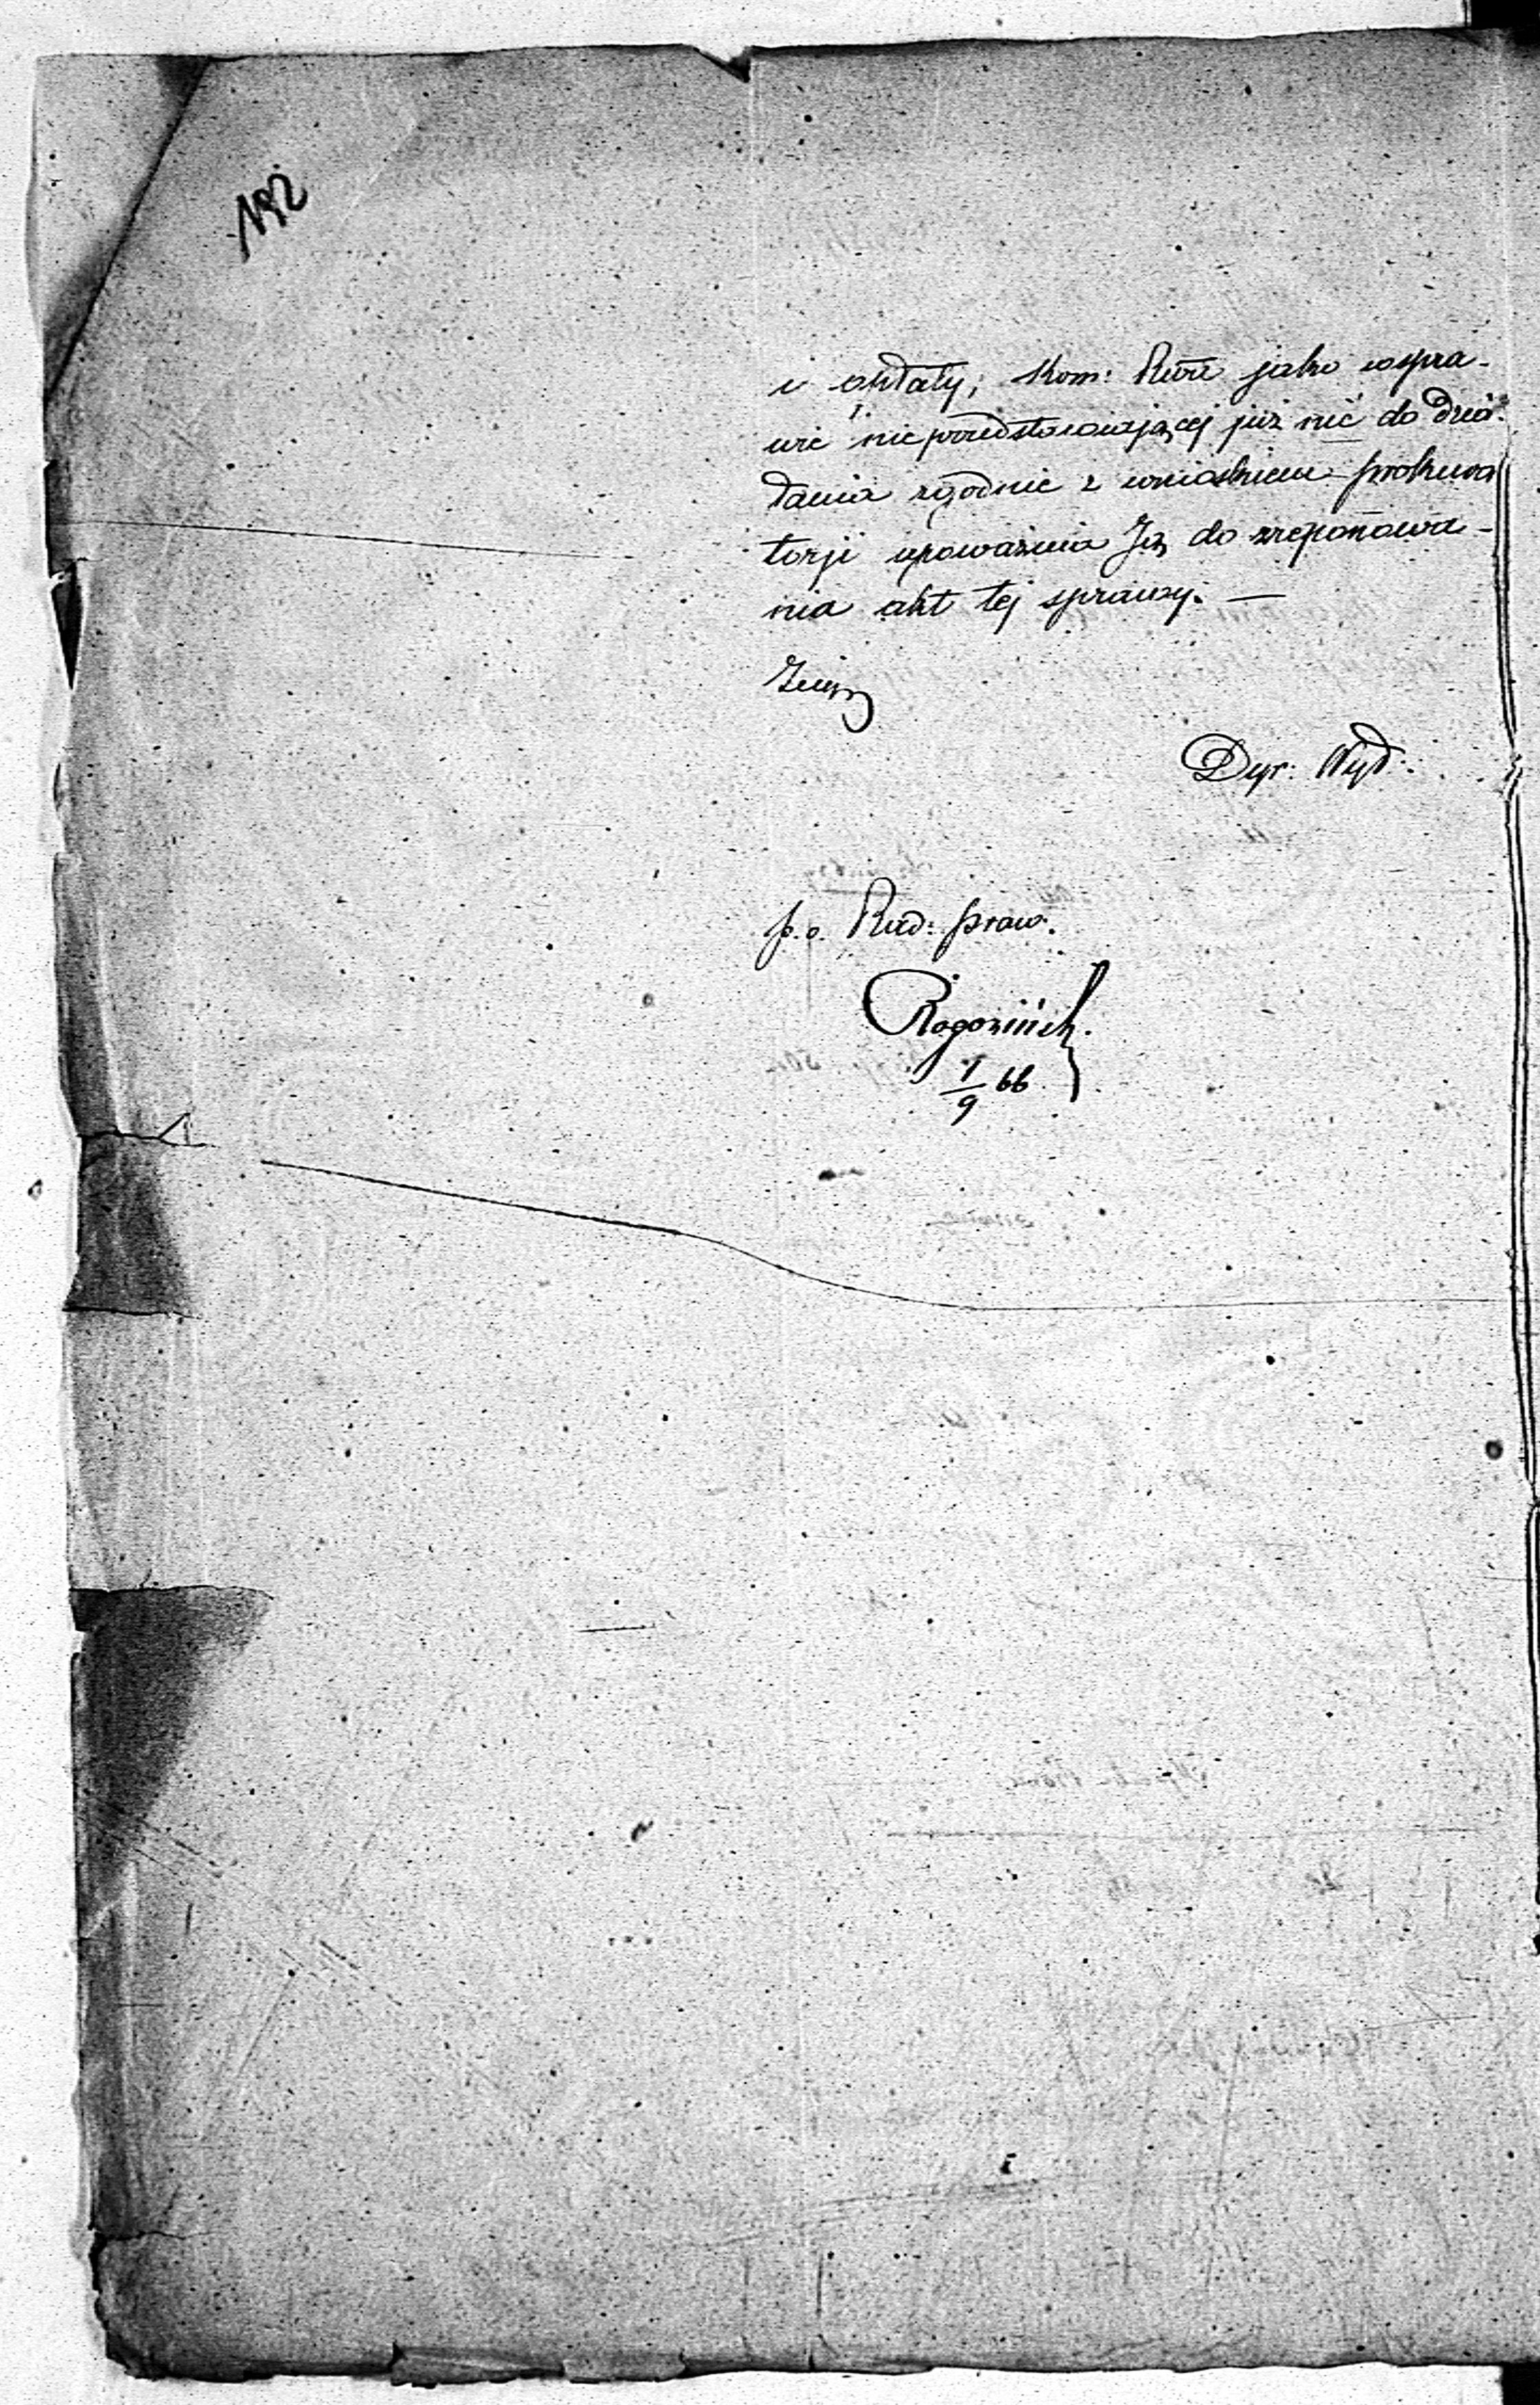 192
i opłaty, Kom: Rwa jako w spra-
wie nieprzedstawiającej już nic do dzia-
łania zgodnie z wnioskiem prokura
torji upoważnia Ją do zreponowa-
nia akt tej sprawy. —
Dyr: Wyd:
p. o. Rad: praw.
Rogoziński
1/9 66